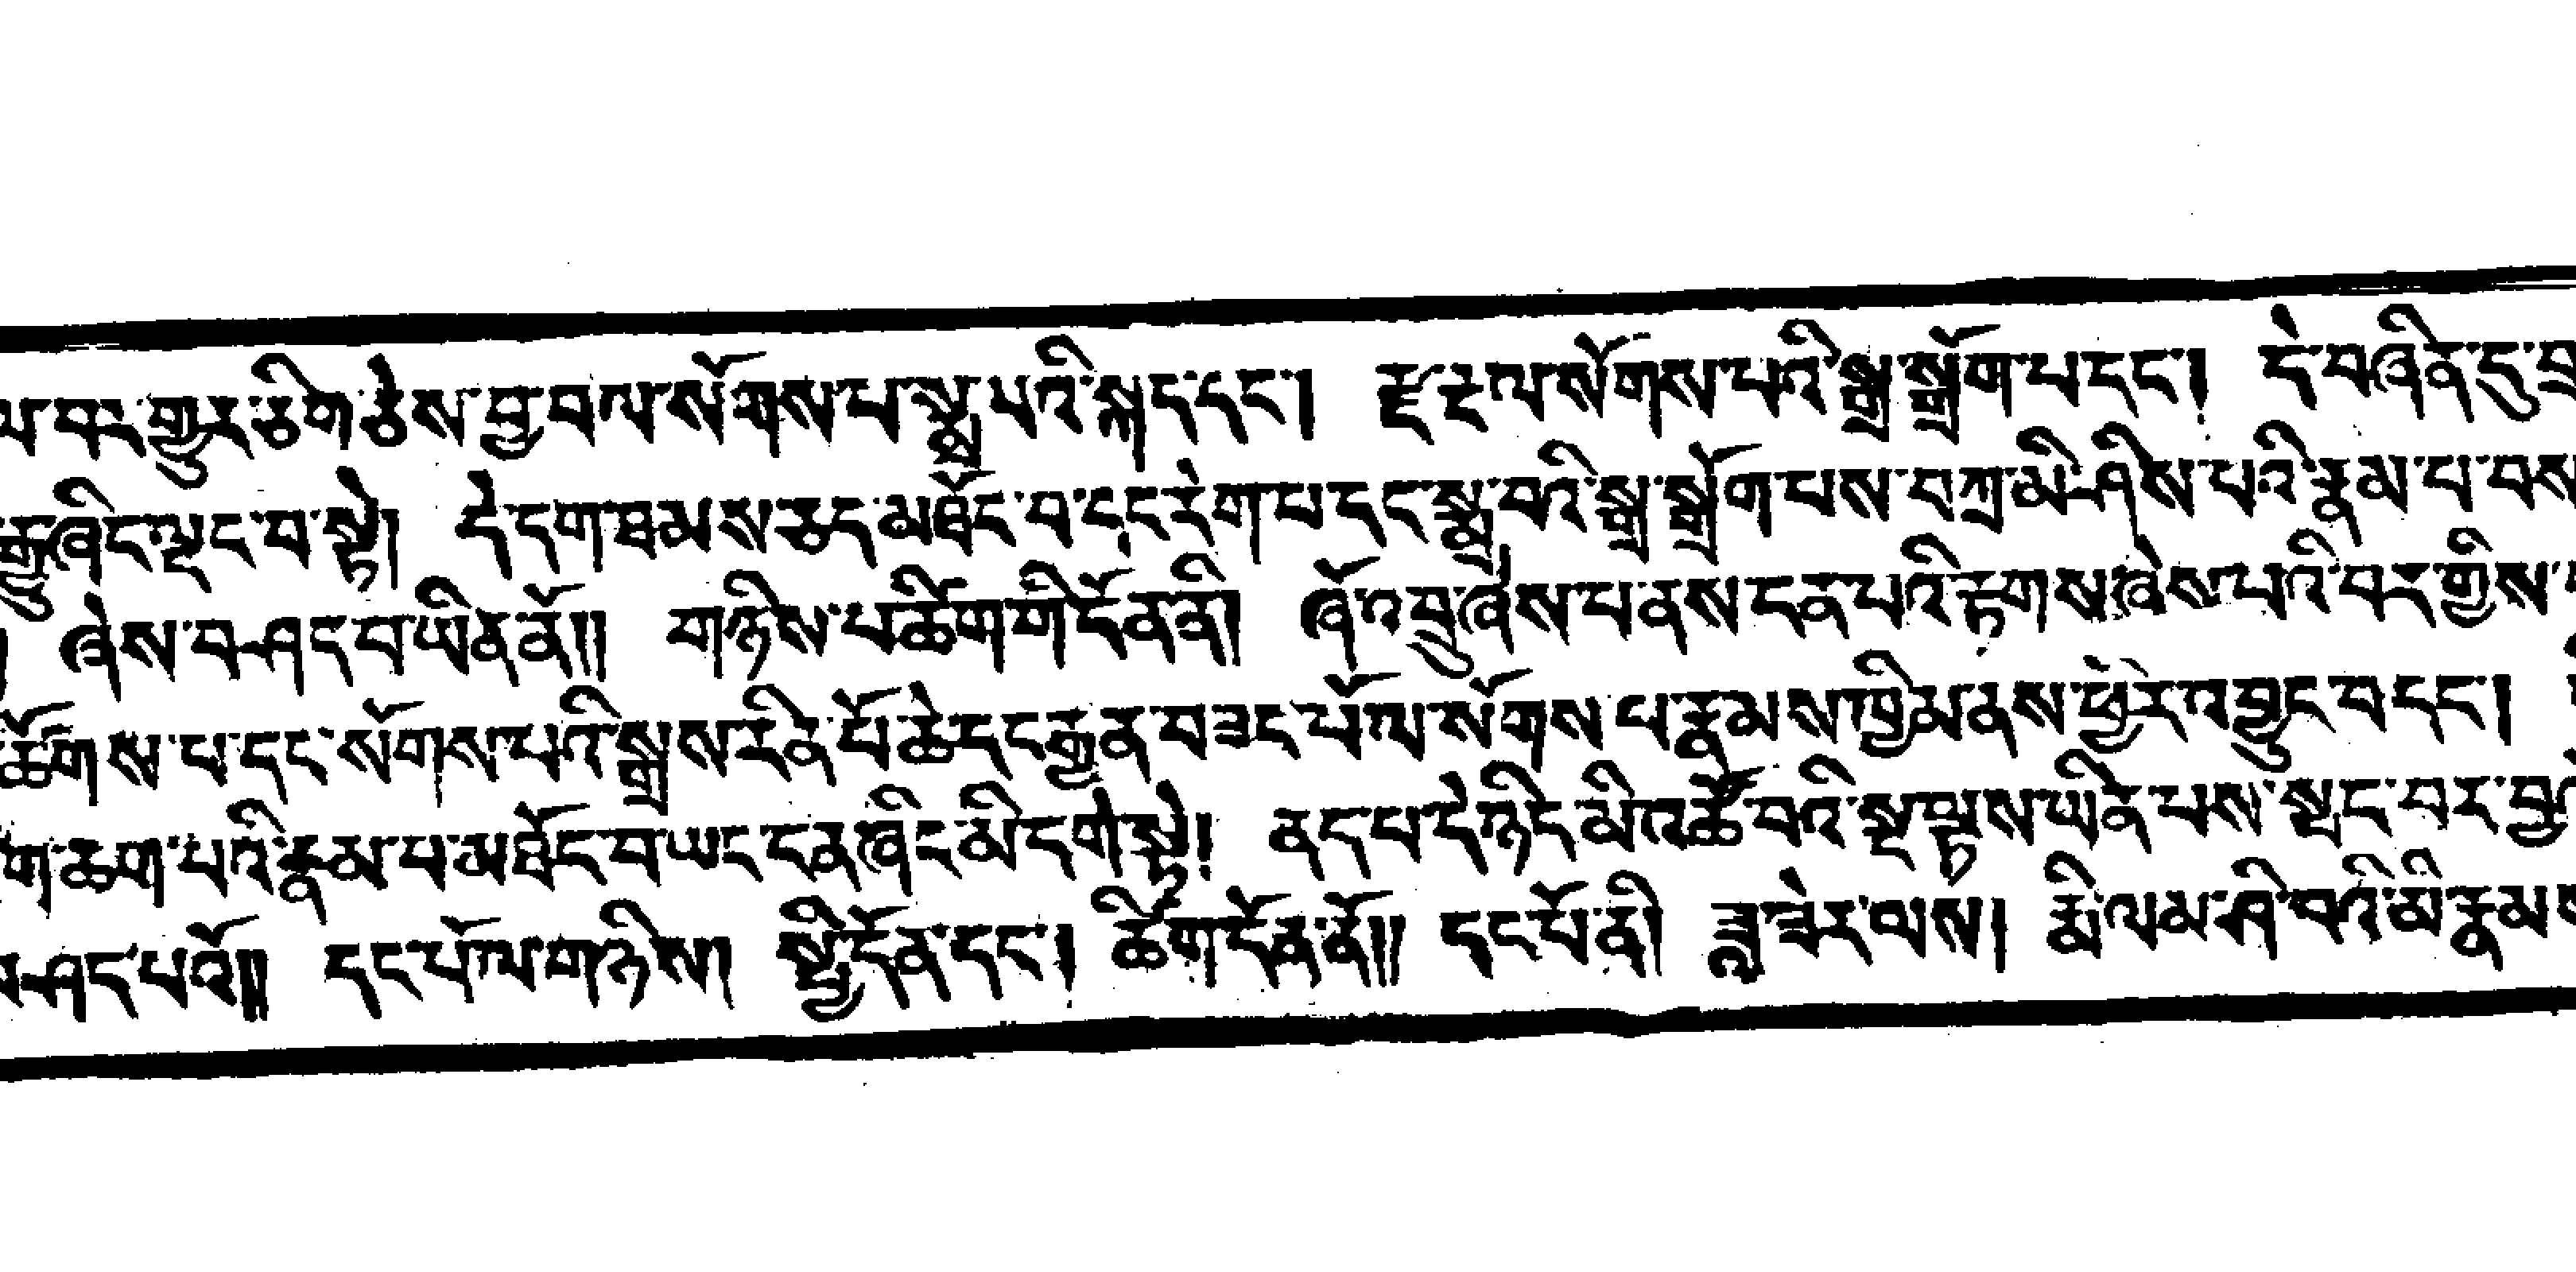 བར་གྱུར་ཅིག་ཅེས་བྱ་བ་ལ་སོགས་པ་སྨྲ་པའི་སྐད་དང་། རྔ་ང་ལ་སོགས་པའི་སྒྲ་སྒྲོག་པ་དང་། དེ་བཞིན་དུ་
ཞིང་ལྡང་བ་སྟེ། དེ་དག་ཐམས་ཅད་མཐོང་བ་དང་རེག་པ་དང་སྨྲ་བའི་སྒྲ་སྒྲོག་པས་བཀྲ་མི་ཤིས་པའི་རྣམ་པ་
ཞེས་བཤད་པ་ཡིན་ནོ།། གཉིས་པ་ཚིག་གི་དོན་ནི། ཞོ་འབྲུ་ཞེས་པ་ནས་དན་པའི་རྟགས་ཞེས་པའི་བར་གྱིས་
ཚོགས་པ་དང་སོགས་པའི་སྒྲས་རིན་པོ་ཆེ་དང་རྒྱན་བཟང་པོ་ལ་སོགས་པ་རྣམས་ཁྱིམ་ནས་ཕྱིར་འབྱུང་བ་དང་།
ཆག་པའི་རྣམ་པ་མཐོང་བ་ཡང་ངན་ཞིང་མི་དགེ་སྟེ། ནད་པ་དེ་ཉིད་མི་འཚོ་བའི་སྔ་ལྟས་ཡིན་པས་སྤང་བར་
བཤད་པའོ།། དང་པོ་ལ་གཉིས། སྤྱི་དོན་དང་། ཚིག་དོན་ནོ།། དང་པོ་ནི། ཟླ་ཟེར་ལས། རྨི་ལམ་ཤི་བའི་མི་རྣམས་